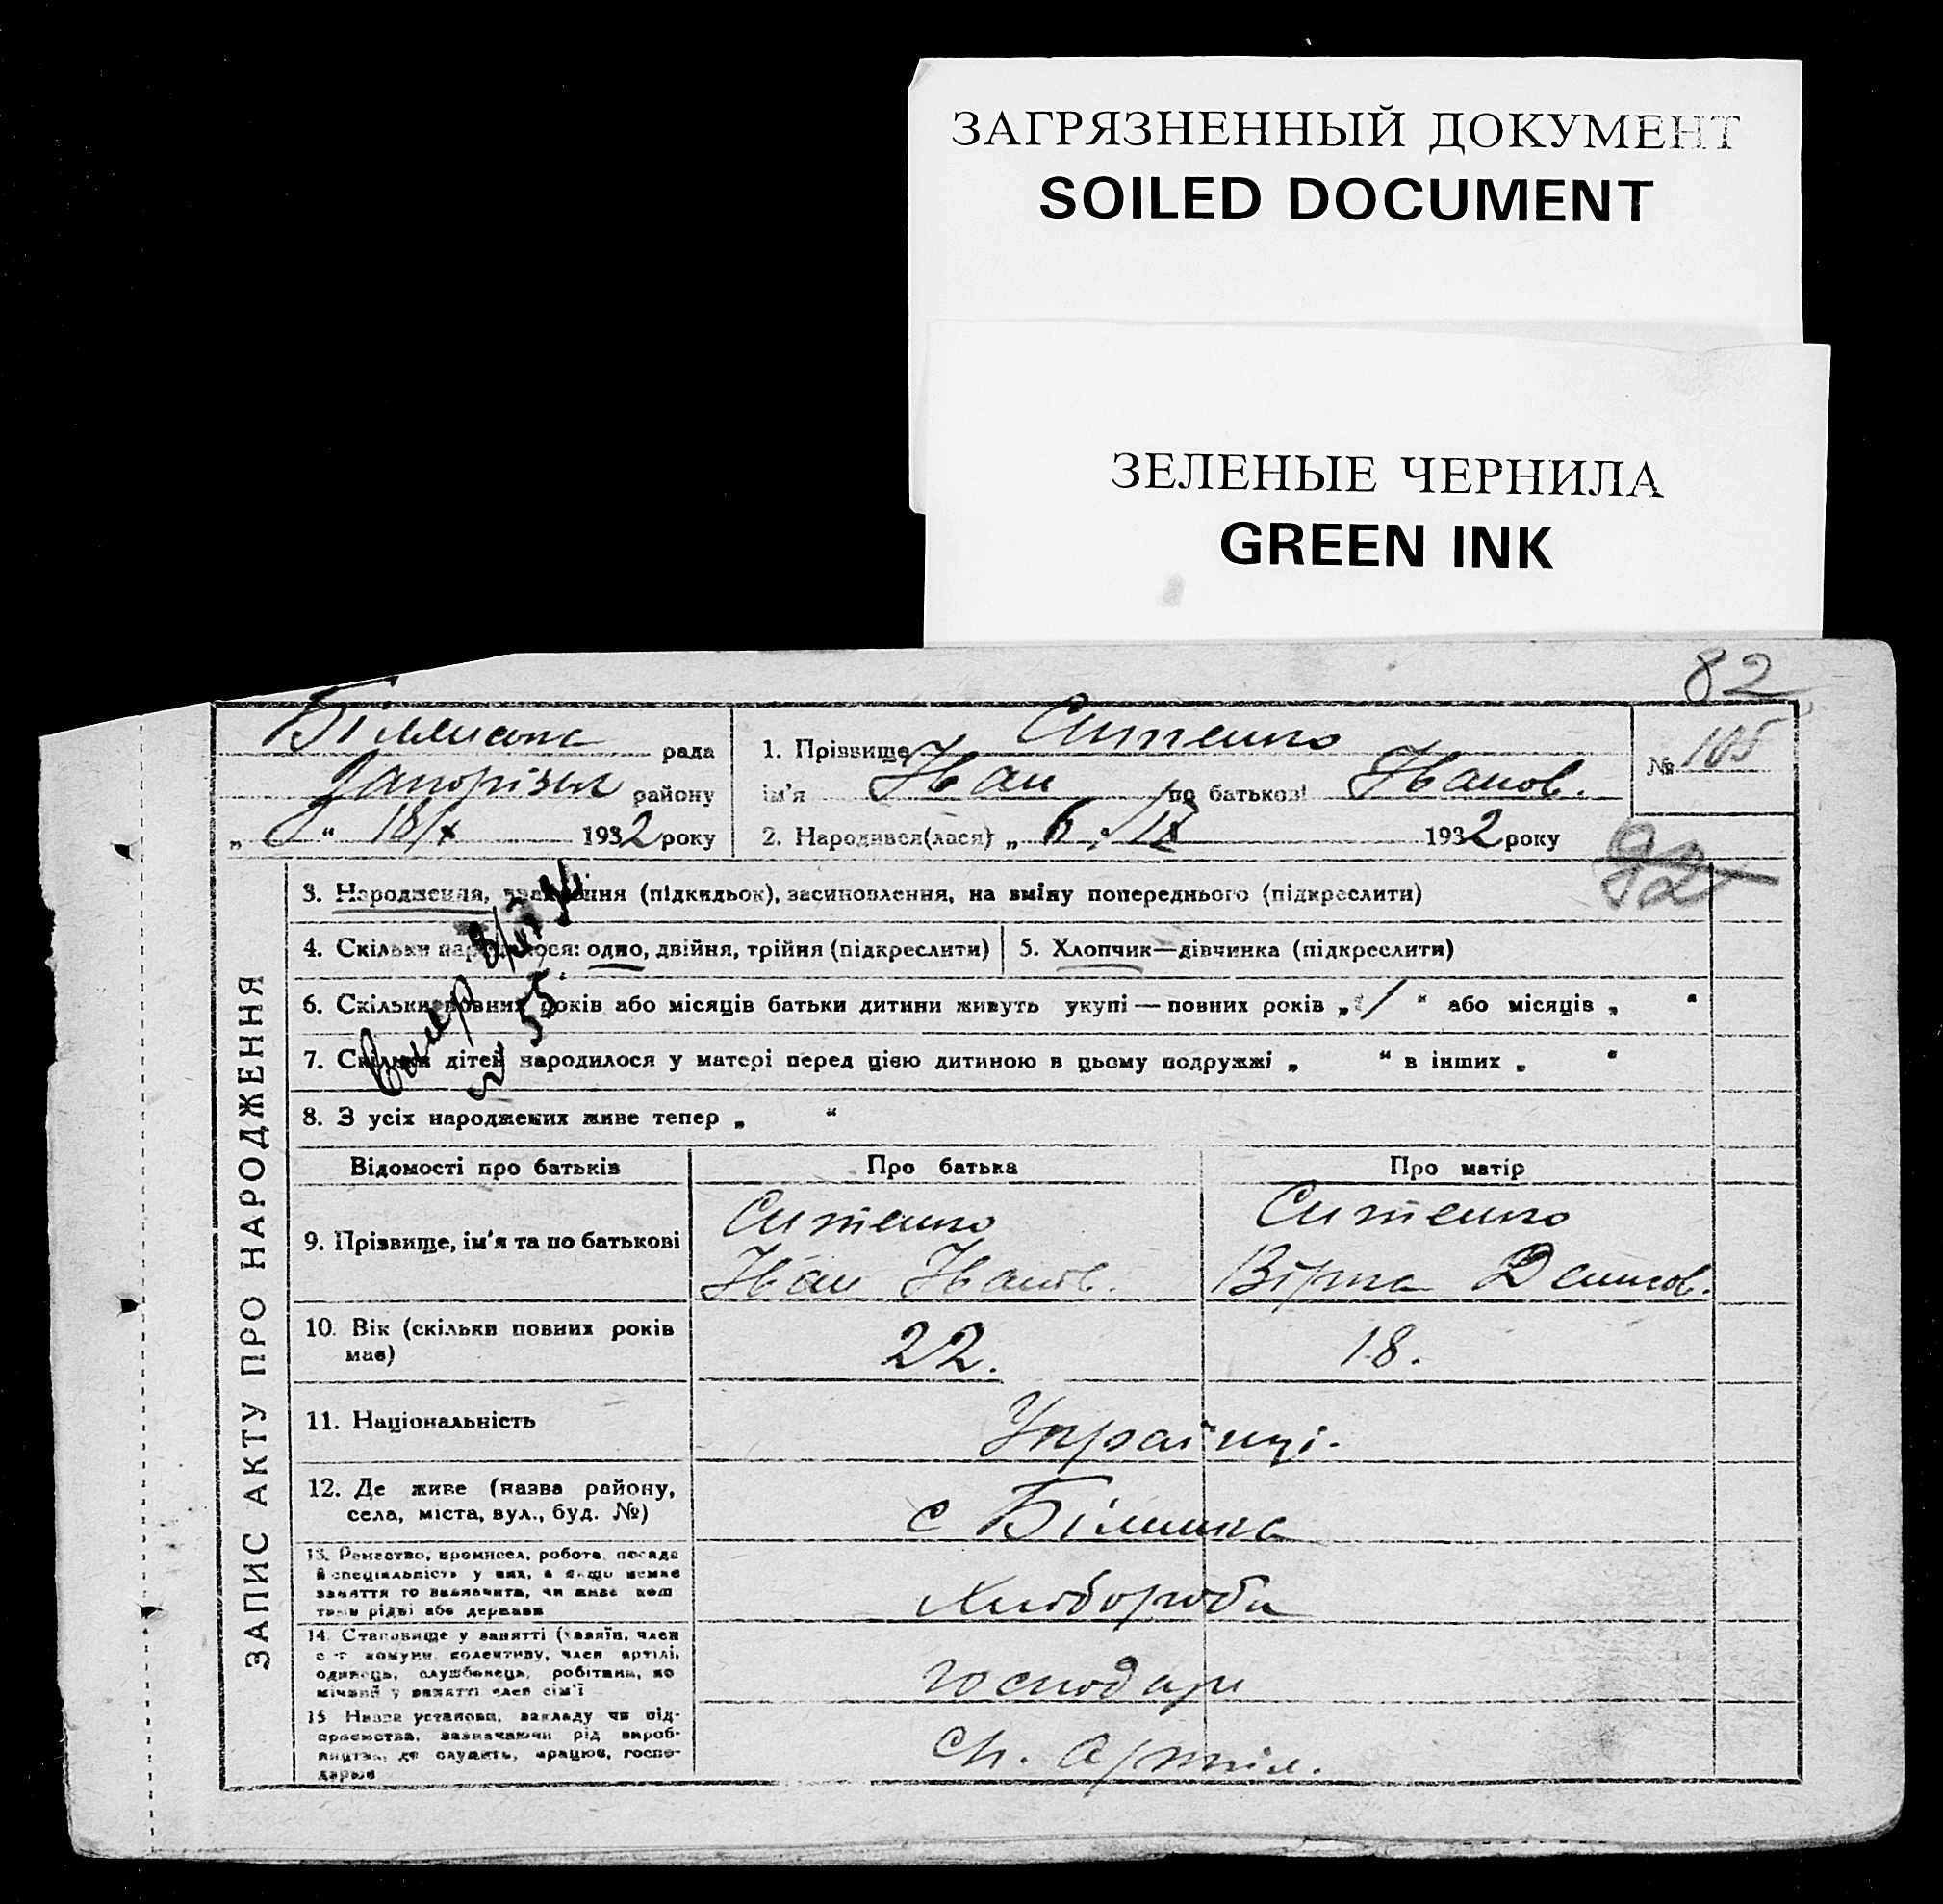 ЗАГРЯЗНЕННЫЙ ДОКУМЕНТ
SOILED DOCUMENT
ЗЕЛЕНЫЕ ЧЕРНИЛА
GREEN INK
82
рада
району
„ “ 18/X 1932 року
1. Прізвище Ситенко
ім'я Іван по батькові Іванов.
2. Народився(лася) „ 6 / IX 1932 року
№ 105
92
ЗАПИС АКТУ ПРО НАРОДЖЕННЯ
3. Народження, (підкидьок), засиновлення, на зміну попереднього (підкреслити)
4. Скільки народилося: одно, двійня, трійня (підкреслити)
5. Хлопчик—дівчинка (підкреслити)
6. Скільки повних років або місяців батьки дитини живуть укупі — повних років „ / “ або місяців „ “
7. Скільки дітей народилося у матері перед цією дитиною в цьому подружжі „ “ в інших „ “
8. З усіх народжених живе тепер „ “
Відомості про батьків
Про батька
Про матір
9. Прізвище, ім'я та по батькові
Ситенко
Іван Іванов.
Ситенко
Вірка Денисов.
10. Вік (скільки повних років
має)
22.
18.
11. Національність
Українці.
12. Де живе (назва району,
села, міста, вул., буд. №)
с
13. Ремество, промисел, робота, посада
й спеціальність у них, а якщо немає
заняття то визначити, чи живе кош
тами рідні або держави
Хлібороби
14. Становище у занятті (хазяїн, член
с-г комуни, колективу, член артілі,
одинець, службовець, робітник, по
мічний у занятті член сім'ї
господари
15 Назва установи, закладу чи під-
приємства, зазначаючи рід вироб-
ництва, де служить, працює, госпо-
дарює
сп. Артіл.